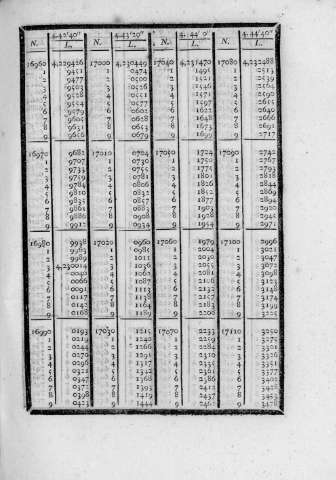 4.42'40" 4.43'20" 4.44'0" 4.44'40"
N. L. N. L. N. L. N. L.
16960 4,229426 17000 4,230449 17040 4,231470 17080 4,232488
1 9451 1 0474 1 1495 1 2513
2 9477 2 0500 2 1521 2 2539
3 9503 3 0526 3 1546 3 2564
4 9528 4 0551 4 1571 4 2590
5 9554 5 0577 5 1597 5 2615
6 9579 6 0602 6 1622 6 2640
7 9605 7 0628 7 1648 7 2666
8 9631 8 0653 8 1673 8 2691
9 9656 9 0679 9 1699 9 2717
16970 9682 17010 0704 17050 1724 17090 2742
1 9707 1 0730 1 1750 1 2767
2 9733 2 0755 2 1775 2 2793
3 9759 3 0781 3 1801 3 2818
4 9784 4 0806 4 1826 4 2844
5 9810 5 0832 5 1852 5 2869
6 9835 6 0857 6 1877 6 2894
7 9861 7 0883 7 1903 7 2920
8 9886 8 0908 8 1928 8 2945
9 9912 9 0934 9 1954 9 2971
16980 9938 17020 0960 17060 1979 17100 2996
1 9963 1 0985 1 2004 1 3021
2 9989 2 1011 2 2030 2 3047
3 4,230014 3 1036 3 2055 3 3072
4 0040 4 1062 4 2081 4 3098
5 0066 5 1087 5 2106 5 3123
6 0091 6 1113 6 2132 6 3148
7 0117 7 1138 7 2157 7 3174
8 0142 8 1164 8 2183 8 3199
9 0168 9 1189 9 2208 9 3225
16990 0193 17030 1215 17070 2233 17110 3250
1 0219 1 1240 1 2259 1 3275
2 0244 2 1266 2 2284 2 3301
3 0270 3 1291 3 2310 3 3326
4 0296 4 1317 4 2335 4 3352
5 0321 5 1342 5 2361 5 3377
6 0347 6 1368 6 2386 6 3402
7 0372 7 1393 7 2412 7 3428
8 0398 8 1419 8 2437 8 3453
9 0423 9 1444 9 2462 9 3478